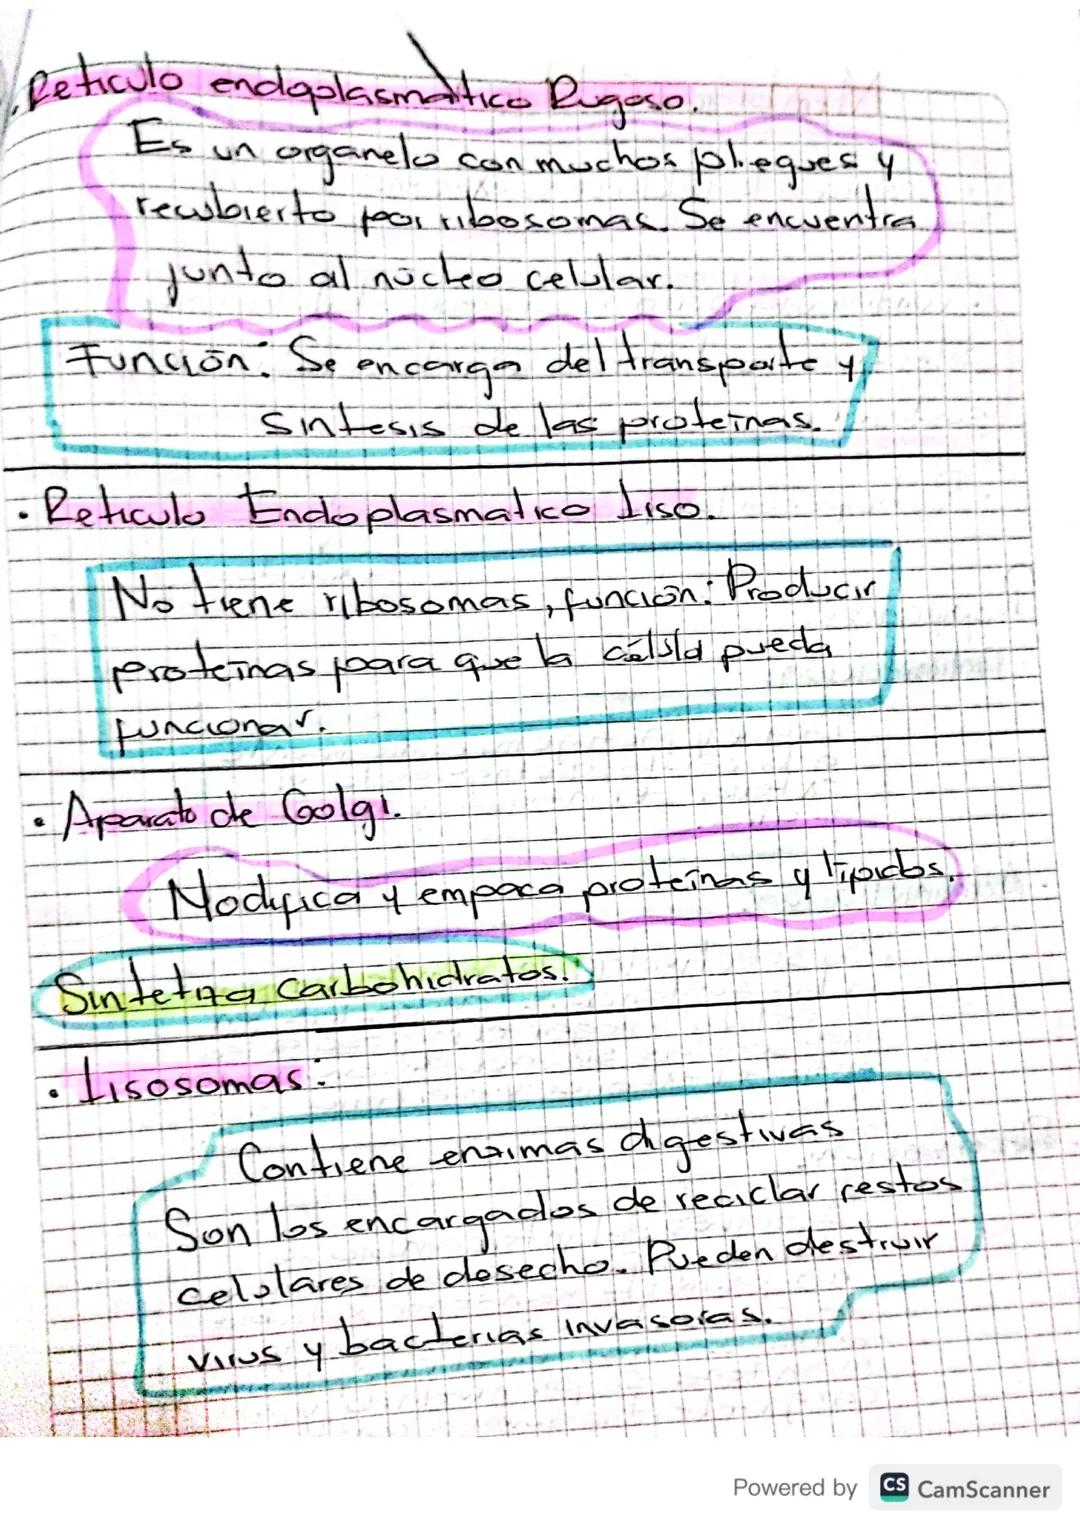 . Reticulo endoplasmático Rugoso.
Es un organelo con muchos pliegues y
recubierto por ribosomas. Se encuentra
junto al núcleo celular.
Función: Se encarga del transporte y
sintesis de las proteínas.
• Reticulo Endoplasmatico Liso.
No tiene ribosomas, función: Producir
proteínas para que la célula pueda
funcionar.
• Aparato de Golgi.
Modifica y empaca proteínas y lípidos.
Sintetiza carbohidratos.
• Lisosomas:
Contiene enzimas digestivas
Son los encargados de reciclar restos
celulares de desecho. Pueden destruir
virus y bacterias invasoras.
Powered by CS CamScanner